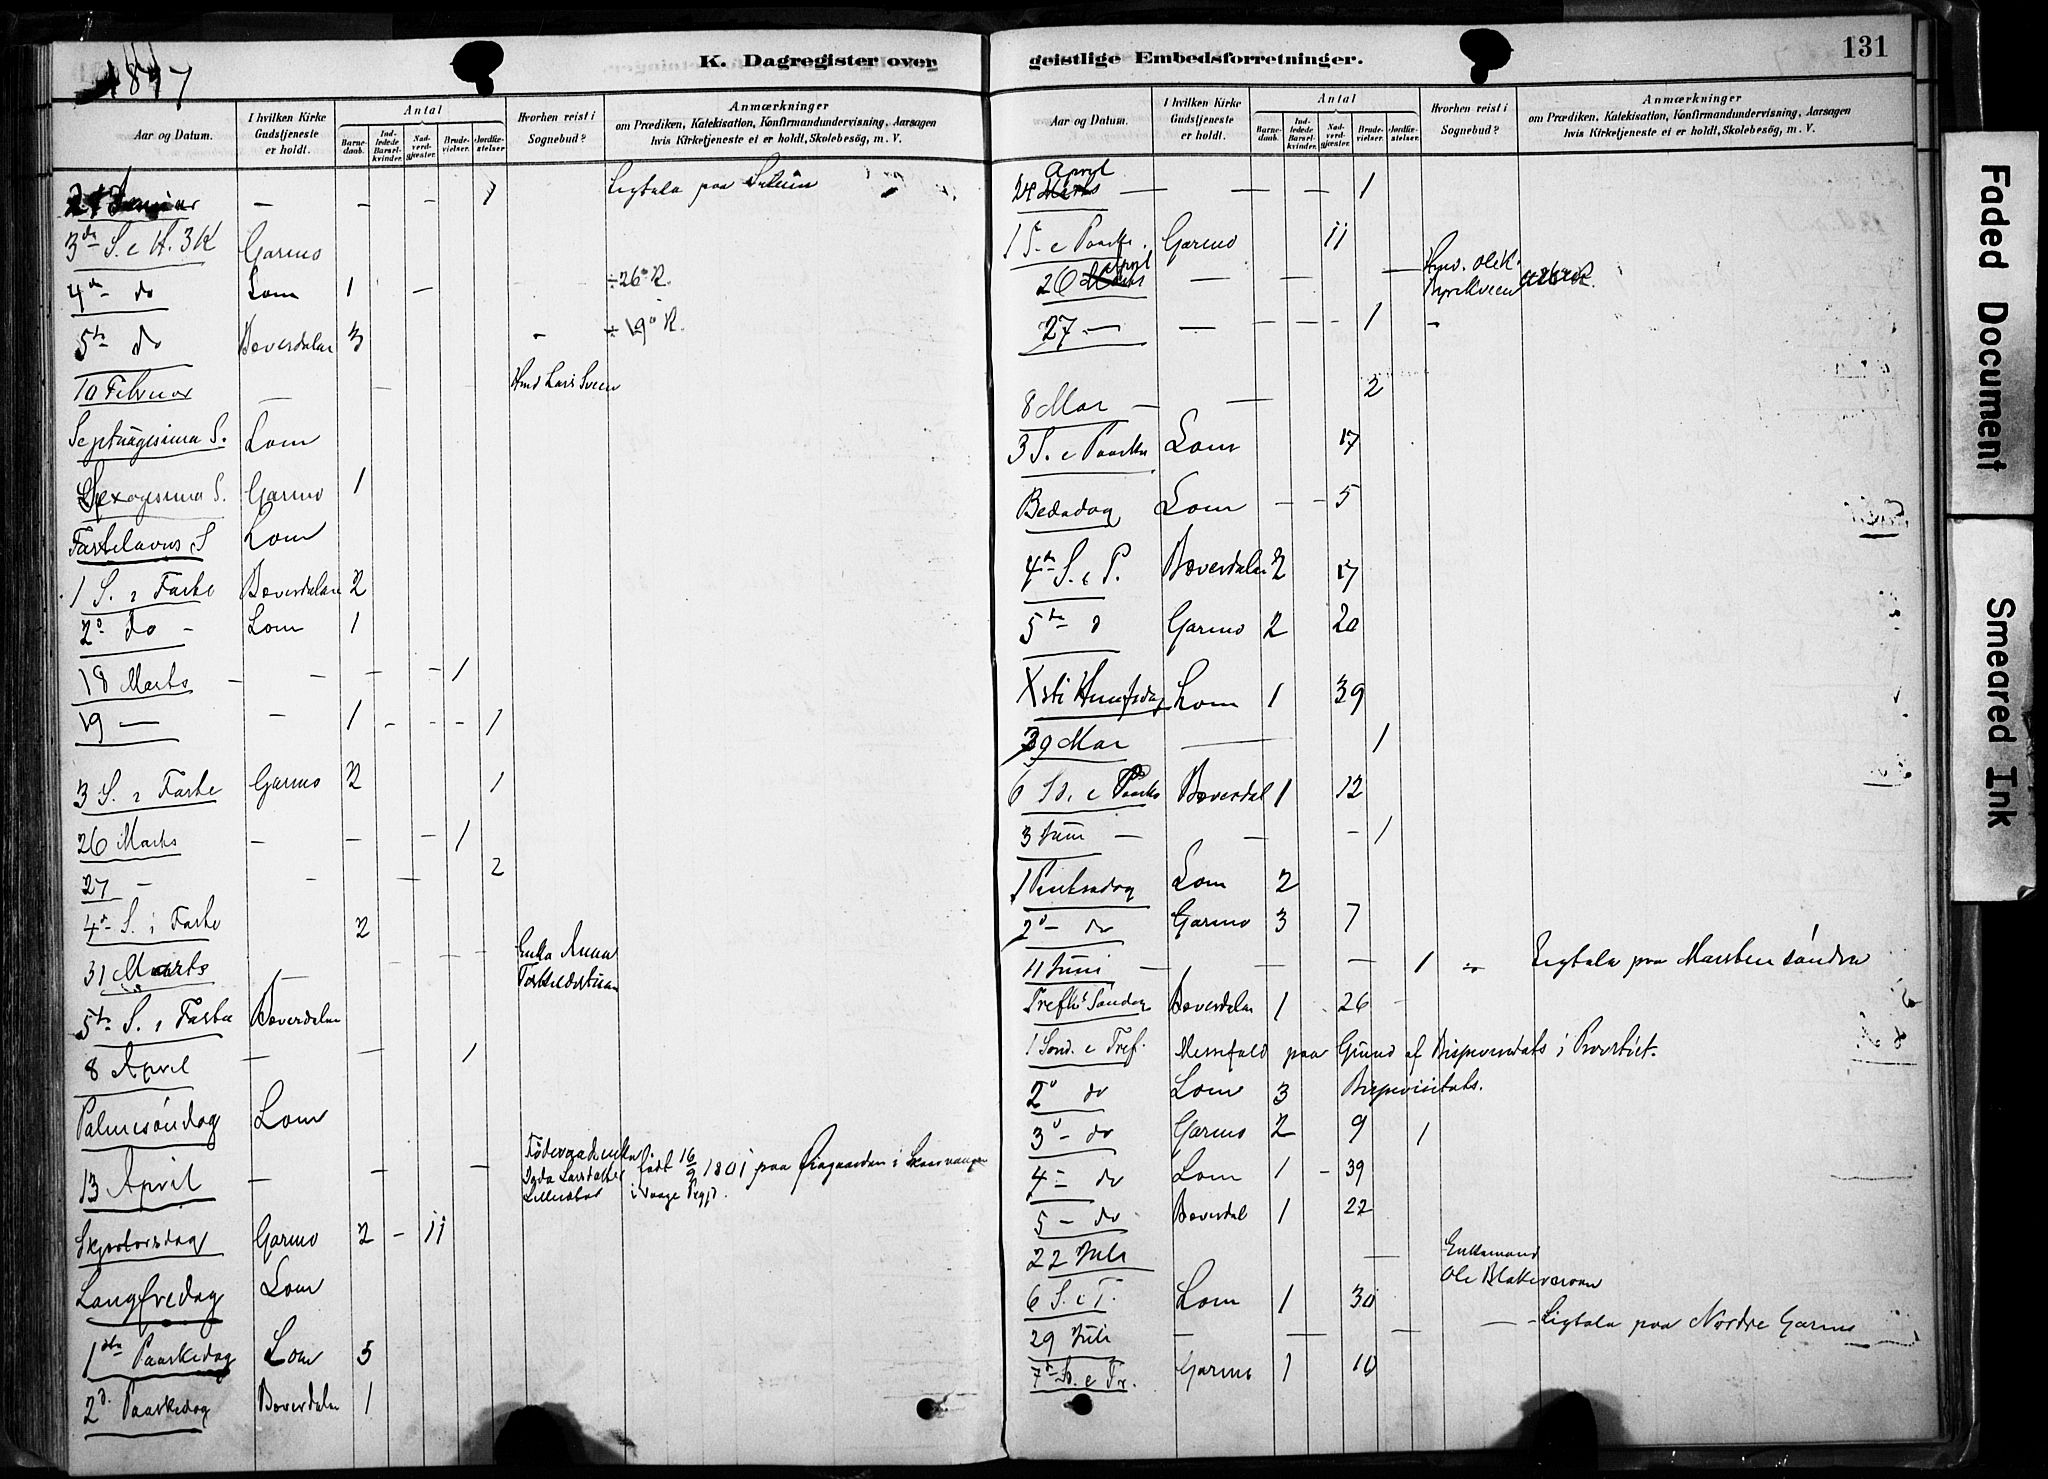 1897
K. Dagregister over
Aar og Datum.
I hvilken Kirke Gudstjeneste er holdt.
Antal
Barne-daab.
Ind-ledede Barsel-kvinder.
Nad-verd-gjæster.
Brude-vielser.
Jordfæ-stelser.
Hvorhen reist i Sognebud?
Anmærkninger
om Prædiken, Katekisation, Konfirmandundervisning, Aarsagen
hvis Kirketjeneste ei er holdt, Skolebesög, m. V.
21 Januar — - - - 1 Ligtale paa
3die S. e H. 3 K Garmo
4de do Lom 1 — ÷ 26° R.
5te do Bæverdalen 3 - ÷ 19° R.
10 Februar — - - Lars Sveen
Septuagesima S. Lom
Sexagesima S. Garmo 1
Fastelavns S Lom
1 S. i Faste Bæverdalen 2
2d do - Lom 1
18 Marts — — — — 1
19 — — 1 - - - 1
3 S. i Faste Garmo 2 1
26 Marts — — — 1
27 — - — 2
4de S. i Faste 2
31 Marts — - - - Enke Anna
5te S. i Faste Bæverdalen
8 April — — 1
Palmesöndag Lom
13 April — — — Föderaadsenke födt 16/9 1801 paa i Skarvangen
i Vaage Prgjd.
Skjærtorsdag Garmo 2 - 11
Langfredag Lom
1ste Paaskedag Lom 5
2d Paaskedag Bæverdalen 1
geistlige Embedsforretninger.
131
Aar og Datum.
I hvilken Kirke Gudstjeneste er holdt.
Antal
Barne-daab.
Ind-ledede Barsel-kvinder.
Nad-verd-gjæster.
Brude-vielser.
Jordfæ-stelser.
Hvorhen reist i Sognebud?
Anmærkninger
om Prædiken, Katekisation, Konfirmandundervisning, Aarsagen
hvis Kirketjeneste ei er holdt, Skolebesög, m. V.
April
24 Marts — — — 1
1 S. e Paaske. Garmo 11
April
26 Marts — — — Ole K.
27 — — — — 1 -
8 Mai — — 2
3 S. e Paaske Lom 17
Bededag Lom - - 5
4de S. e P. Bæverdalen 2 17
5te d Garmo 2 20
Xsti Himfsdag Lom 1 39
29 Mai — 1
6 S. e Paaske Bæverdal 1 12
3 Juni — - — - 1
1 Pintsedag Lom 2
2d - do Garmo 3 7
11 Juni — - — — 1 Ligtale paa söndre
Trefh. Söndag Bæverdalen 1 26 -
1 Sönd. e Tref. Messefald paa Grund af Bispevisitats i Provstiet.
2d do Lom 3 Bispevisitats.
3d - do Garmo 2 9 1
4 - do Lom 1 - 39
5 - do Bæverdal 1 22
22 Juli — Enkemand
Ole
6 S. e T. Lom 1 30
29 Juli — — — — Ligtale paa Nordre Garmo
7de S. e Tr. Garmo 1 10
Faded Document
Smeared Ink